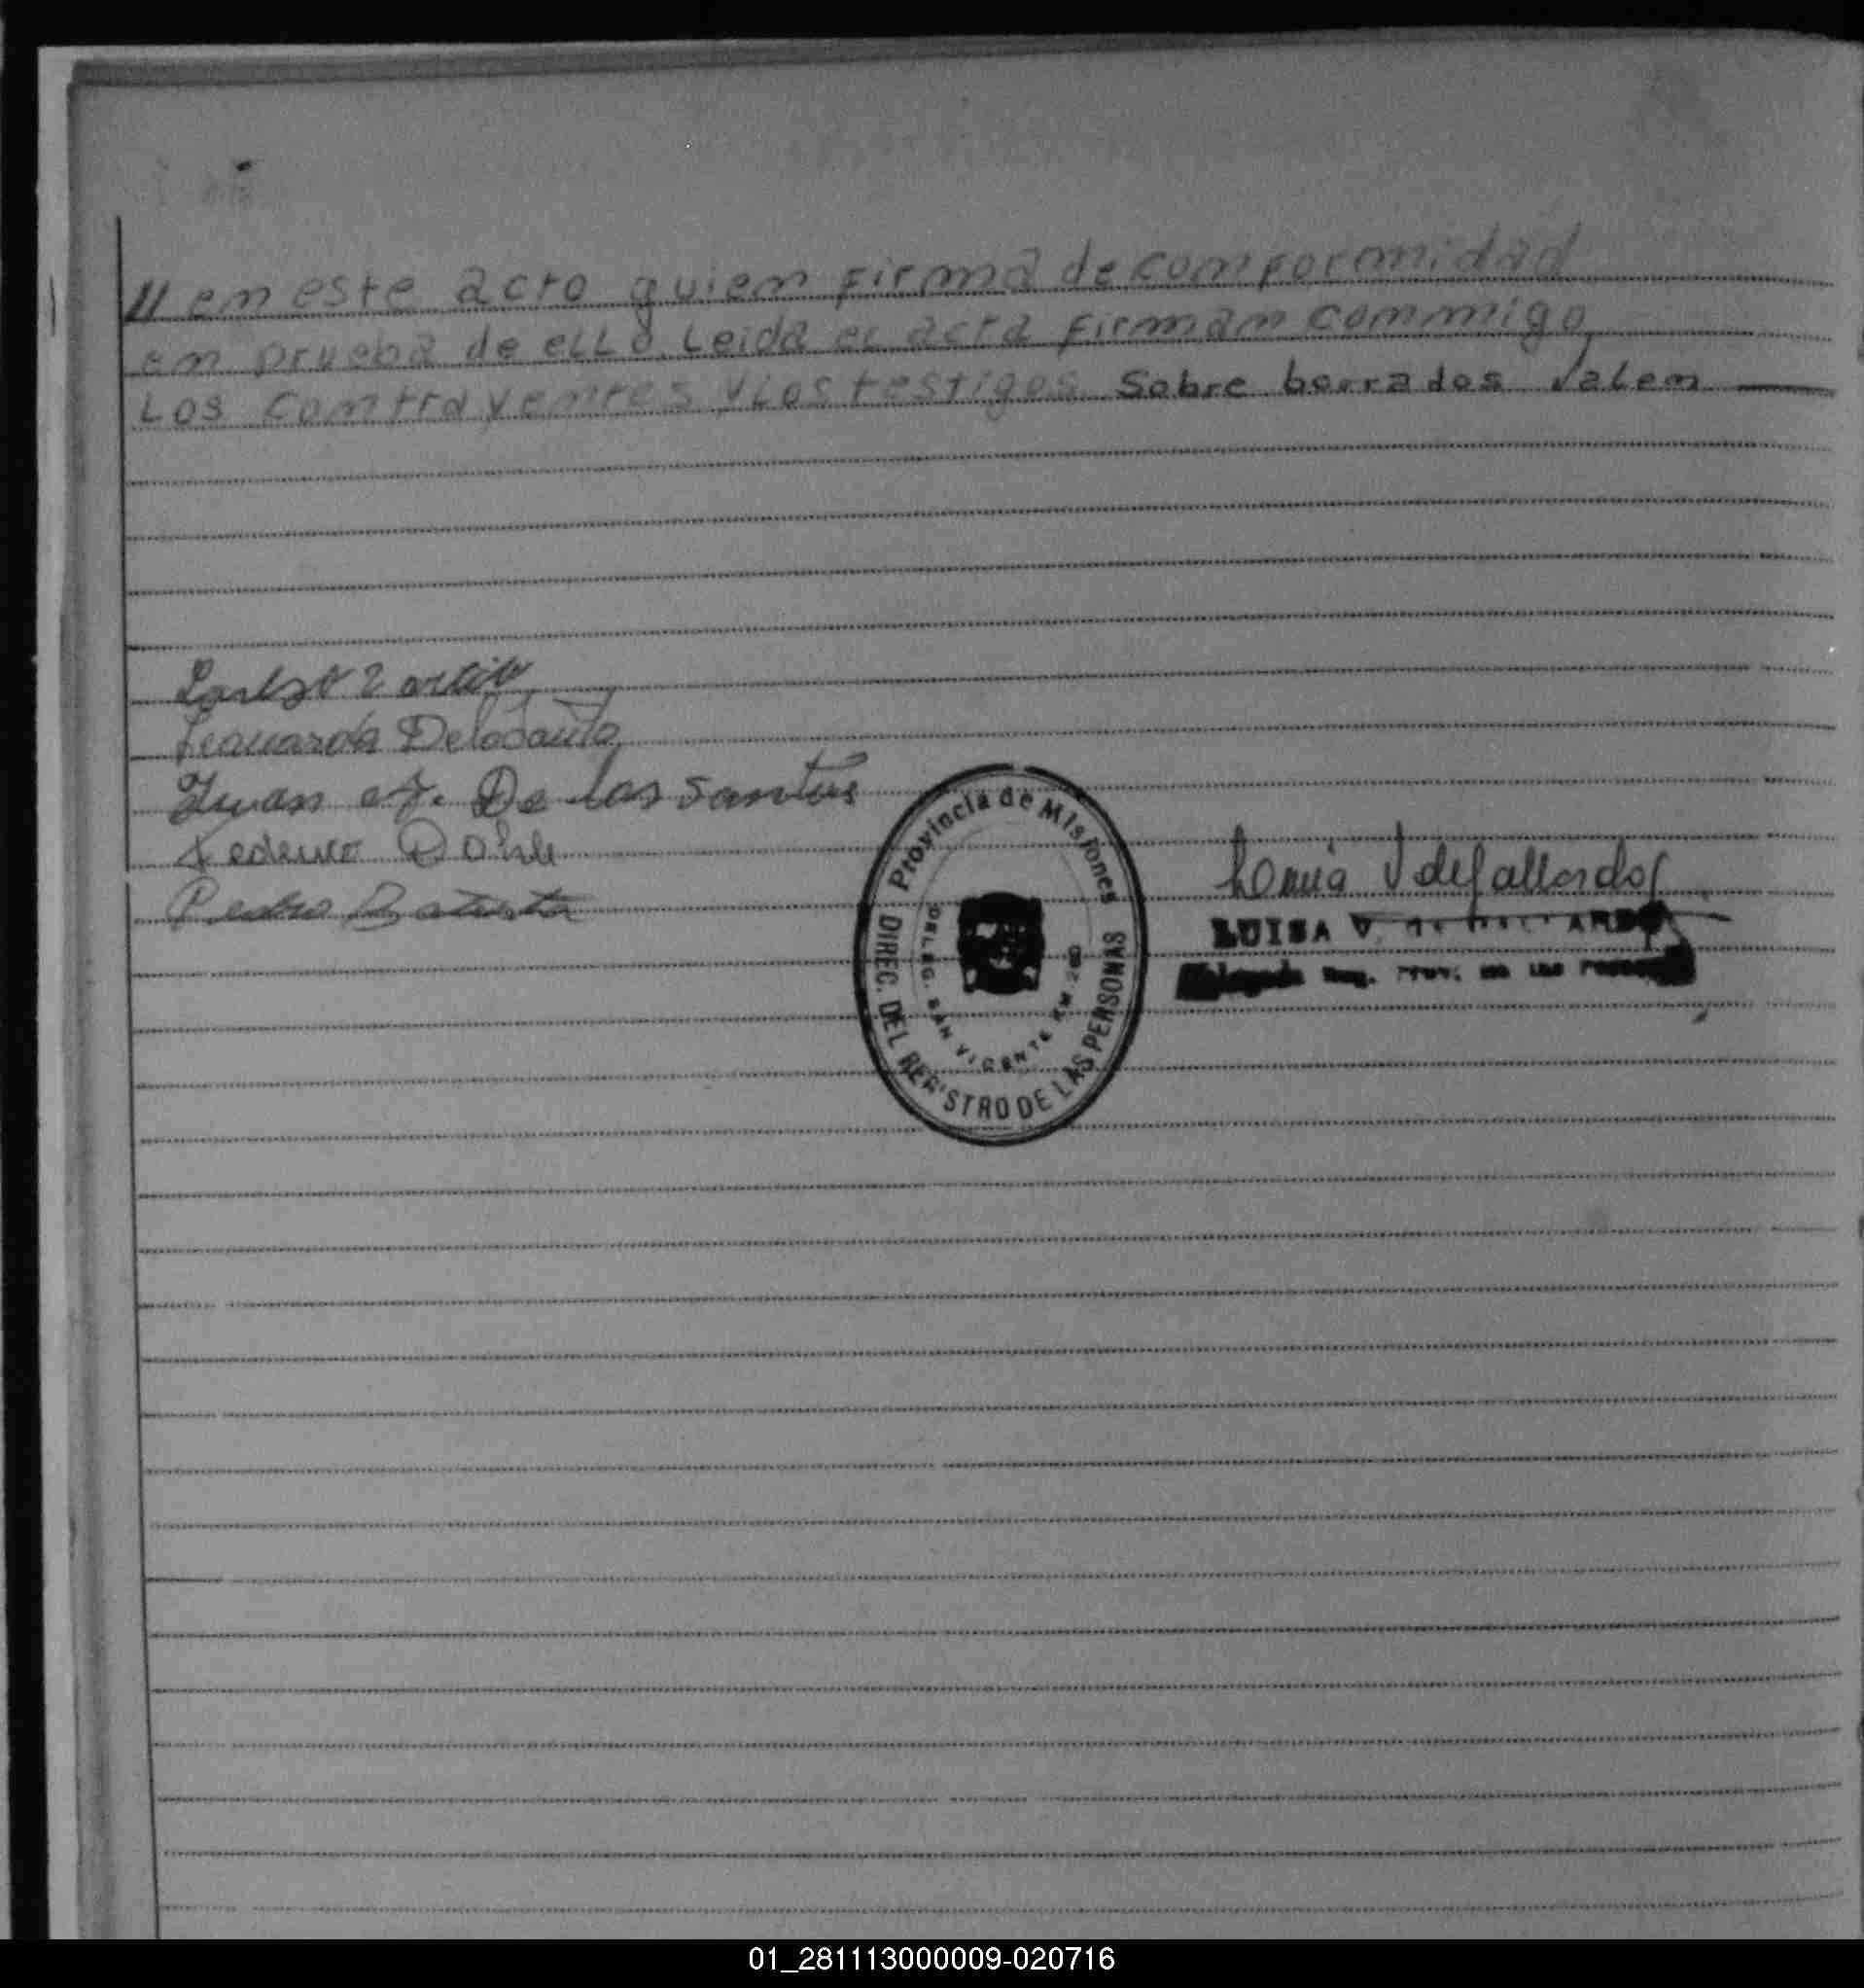 // en este acto quien firma de conformidad
en prueba de ello. Leida el acta firman conmigo
Los Contrayentes y los testigos Sobre borrados Valen
De los Santos
Juan A. De los Santos
Federico Dohle
Pedro Batista
Provincia de Misiones
DELEG. SAN VICENTE KM. 280
DIREC. DEL REGISTRO DE LAS PERSONAS
Luisa V de Gallardo
LUISA V. de GALLARDO
Reg. Prov. de las
01_281113000009-020716